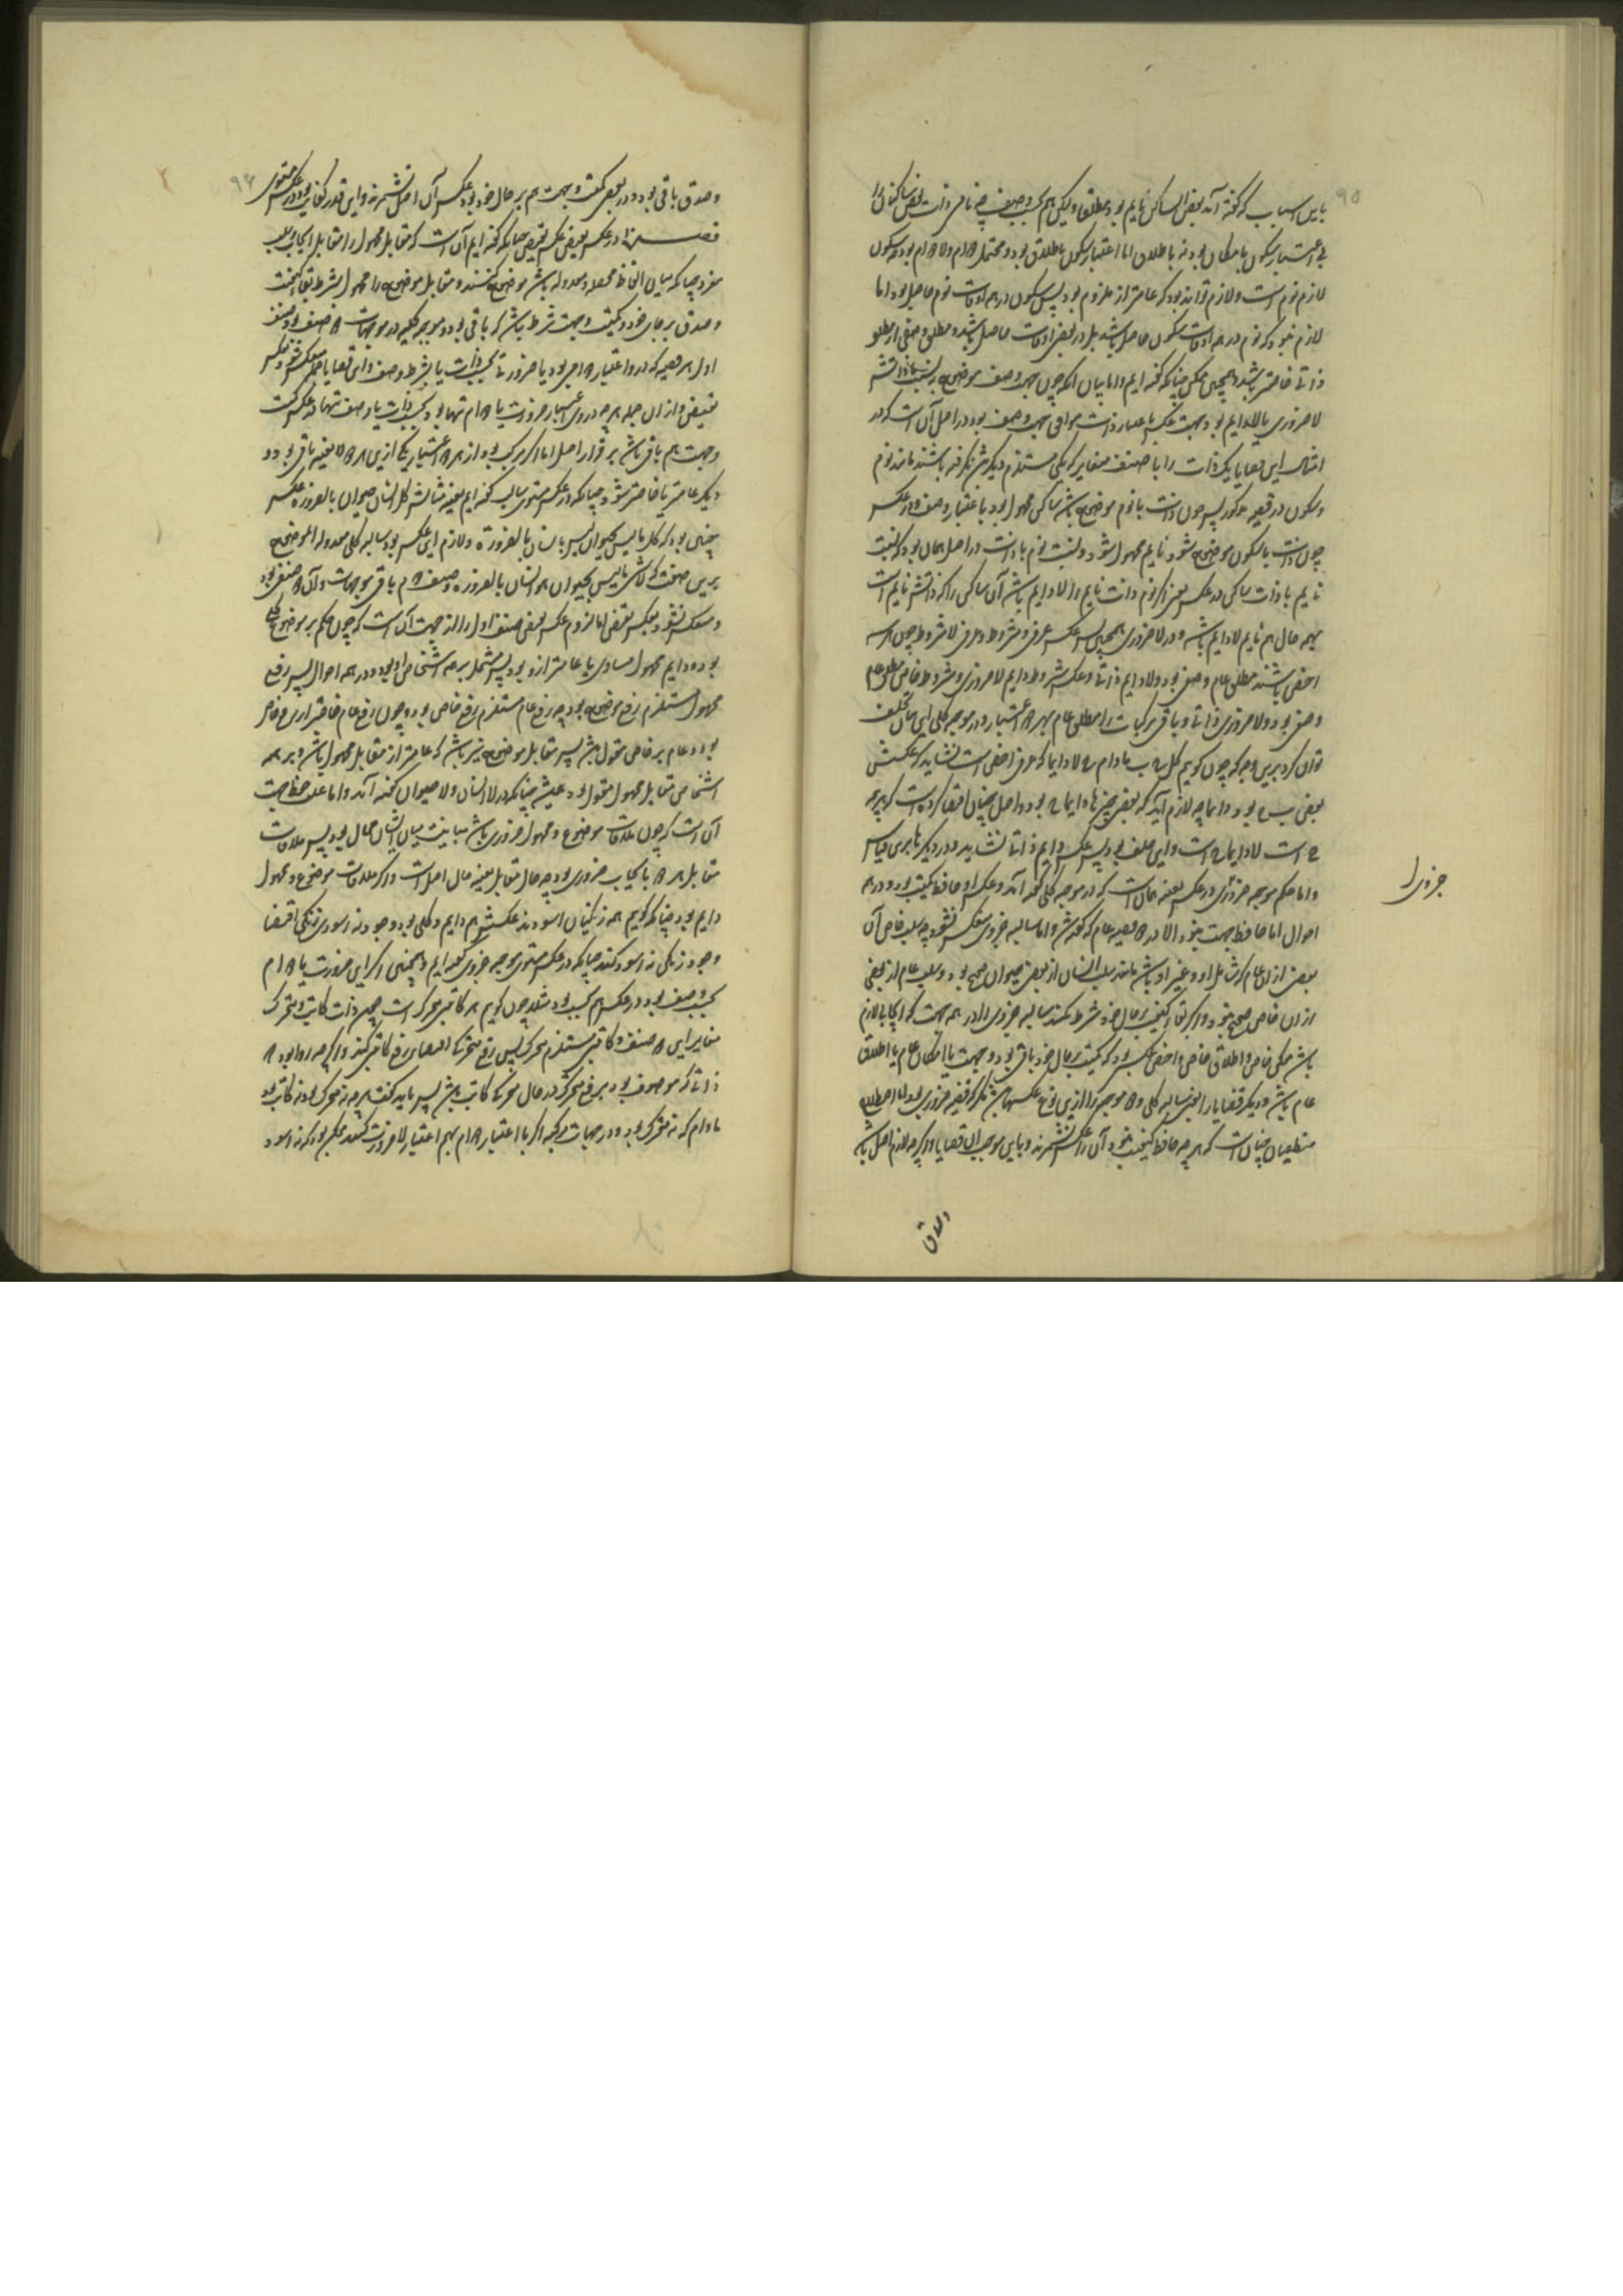 بدین اسباب که گفته آمد بعض الساکن نایم بود مطلقا ولیکن هم بحسب وصف چه ذات بعض ساکنان را
بی اعتبار سکون با مکان بود نه باطلاق اما اعتبار سکون باطلاق بود و محتمل دوام ولا دوام بود چه سکون
لازم نوم است ولازم تواند بود که عامتر از ملزوم بود پس سکون در همه اوقات نوم حاصل بود اما
لازم نبود که نوم در همه اوقات سکون حاصل باشد بل در بعضی اوقات حاصل باشد و مطلق وصفی از مطلق
ذاتی خاصتر باشد و همچنین ممکن چنانکه گفته ایم واما بیان آنکه چون جهت وصف موضوع
لا ضروری یا لا دایم بود جهت عکس باعتبار ذات موافق جهت وصف بود در اصل آن است که در
امثال این قضایا یک ذات را با دو صفت متغایر که یکی مستلزم دیگرش نگرفته باشند مانند نوم
وسکون در قضیه مذکور پس چون ذات با نوم موضوع باشد ساکن محمول بود باعتبار وصف و در عکس
چون ذات با سکون موضوع شود نایم محمول شود و نسبت نوم با ذات در اصل همان بود که نسبت
نایم با ذات ساکن در عکس یعنی اگر نوم ذات نایم را لا دایم باشد آن ساکن را که ذاتش نایم است
بهمه حال هم نایم لا دایم باشد و در لا ضروری همچنین پس عکس عرفی و مشروط و عرفی لا مشروط چون هر سه
اخص باشند مطلق عام وصفی بود ولا دایم ذاتی و عکس مشروط دایم لا ضروری و مشروط خاص مطلق عام
وصفی بود و لا ضروری ذاتی و باقی مرکبات را مطلق عام بهر دو اعتبار و در موجبه کلی این بیان بخلف
توان کرد برین وجه که چون گوییم کل ج ب مادام ج لا دایما که عرفی اخص است نشاید که عکسش
بعض ب ج بود دایما چه لازم آید که بعضی چیزها دایما ج بود و اصل چنان اقتضا کرده است که هر چه
ج است لا دایما ج است و این خلف بود پس عکس دایم ذاتی نشاید و در دیگرها برین قیاس
واما حکم موجبه جزوی در عکس بعینه همان است که در موجبه کلی گفته آمد و عکس او حافظ کمیت بود در همه
احوال اما حافظ جهت نبود الا در دو قضیه عام که گفته شد واما سالبه جزوی منعکس نشود چه سلب خاص از آن
بعضی از ان عام که شامل او و غیر او باشد مانند سلب انسان از بعضی حیوان صحیح بود و سلب عام از بعضی
ازان خاص صحیح نبود و اگر بقاء کیفیت بر حال خود شرط نکنند سالبه جزوی را در همه جهت که ایجابی لازم
باشد ممکن خاص و اطلاق خاص و اخص عکس بود که کمیت بر حال خود باقی بود و جهت با امکان عام یا اطلاق
عام باشد و دیگر قضایا را یعنی سالبه کلی و دو موجبه را ازین نوع عکسها باشد مگر که قضیه ضروری بود اما اصطلاح
منطقیان چنان است که هر چه حافظ کیفیت نبود آن را عکس نشمرند و بایس موجب این قضایا و اگر چه لازم اصل باشد
جزوی را
وصدق
وصدق باقی بود و در بعضی کمیت و جهت هم بر حال خود بود عکس آن اصل نشمرند و این قدر کفایت بود در عکس مستوی
فصل در عکس نقیض عکس نقیض چنانکه گفته ایم آن است که مقابل محمول را مقابل ایجاب و سلب
مفرد چنانکه میان الفاظ محصله و معدوله باشد موضوع کنند و مقابل موضوع را محمول بشرط بقاء کیفیت
وصدق بر جای خود و کمیت و جهت شرط باشد که باقی بود و موجبه کلیه در موجهات دو صنف بود صنف
اول هر قضیه که در و اعتبار دوامی بود یا ضرورتی بحسب ذات یا بشرط وصف و این قضایا جمله منعکس شود عکس
نقیض و ازان جمله هر چه در وی اعتبار ضرورت یا دوام تنها بود بحسب ذات یا وصف تنها در عکس کمیت
وجهت هم باقی باشد بر قرار اصل اما اگر مرکب بود از هر دو اعتبار یکی ازین هر دو لا بعینه باقی بود و
دیگر عامتر یا خاصتر شود چنانکه در عکس مستوی سالب گفته ایم بعینه مثالش کل انسان حیوان بالضرورة عکس
چنین بود که کل ما لیس بحیوان لیس بانسان بالضرورة ولازم این عکس بود سالبه کلی معدوله الموضوع
برین صفت که لا شی مما لیس بحیوان هو انسان بالضرورة و صنف دوم باقی موجهات و آن دو صنف بود
و منعکس نشود بعکس نقیض اما لزوم عکس نقیض صنف اول را از جهت آن است که چون حکم بر موضوع کلی
بود و دایم محمول مساوی یا عامتر ازو بود پس مشتمل بر همه اشخاص او بود و در همه احوال پس رفع
محمول مستلزم رفع موضوع بود چه رفع عام مستلزم رفع خاص بود و چون رفع عام خاصتر از رفع خاص
بود و عام بر خاص مقول باشد پس مقابل موضوع نیز باشد که عامتر از مقابل محمول باشد و بر همه
اشخاص مقابل محمول مقول بود همیشه چنانکه در لا انسان ولا حیوان گفته آمد واما علت حفظ جهت
آن است که چون ملاقات موضوع و محمول ضروری باشد مباینت میان ایشان محال بود پس ملاقات
مقابل هر دو با ایجاب ضروری بود چه حال مقابل بعینه حال اصل است و اگر ملاقات موضوع و محمول
دایم بود چنانکه گوییم همه زنگیان اسودند عکسش هم دایم و کلی بود و وجود نه اسودی زنگی اقتضا
وجود زنگی نه اسود کند چنانکه در عکس مستوی موجبه جزوی گفته ایم و همچنین اگر این ضرورت یا دوام
بحسب وصف بود در عکس هم بحسب او مثلا چون گوییم هر کاتبی متحرک است چون ذات کاتب و متحرک
مغایر این دو صنف و کاتبی مستلزم متحرکی پس رفع متحرکی اقتضای رفع کاتبی کند و اگر چه روا بود که
ذاتی که موصوف بود برفع متحرک در حال متحرکی کاتب باشد پس باید گفت هر چه نه متحرک بود نه کاتب بود
مادام که نه متحرک بود و در جهات مرکبه اگر با اعتبار دوام بهم اعتبار لا ضرورت کنند ممکن بود که نه اسود